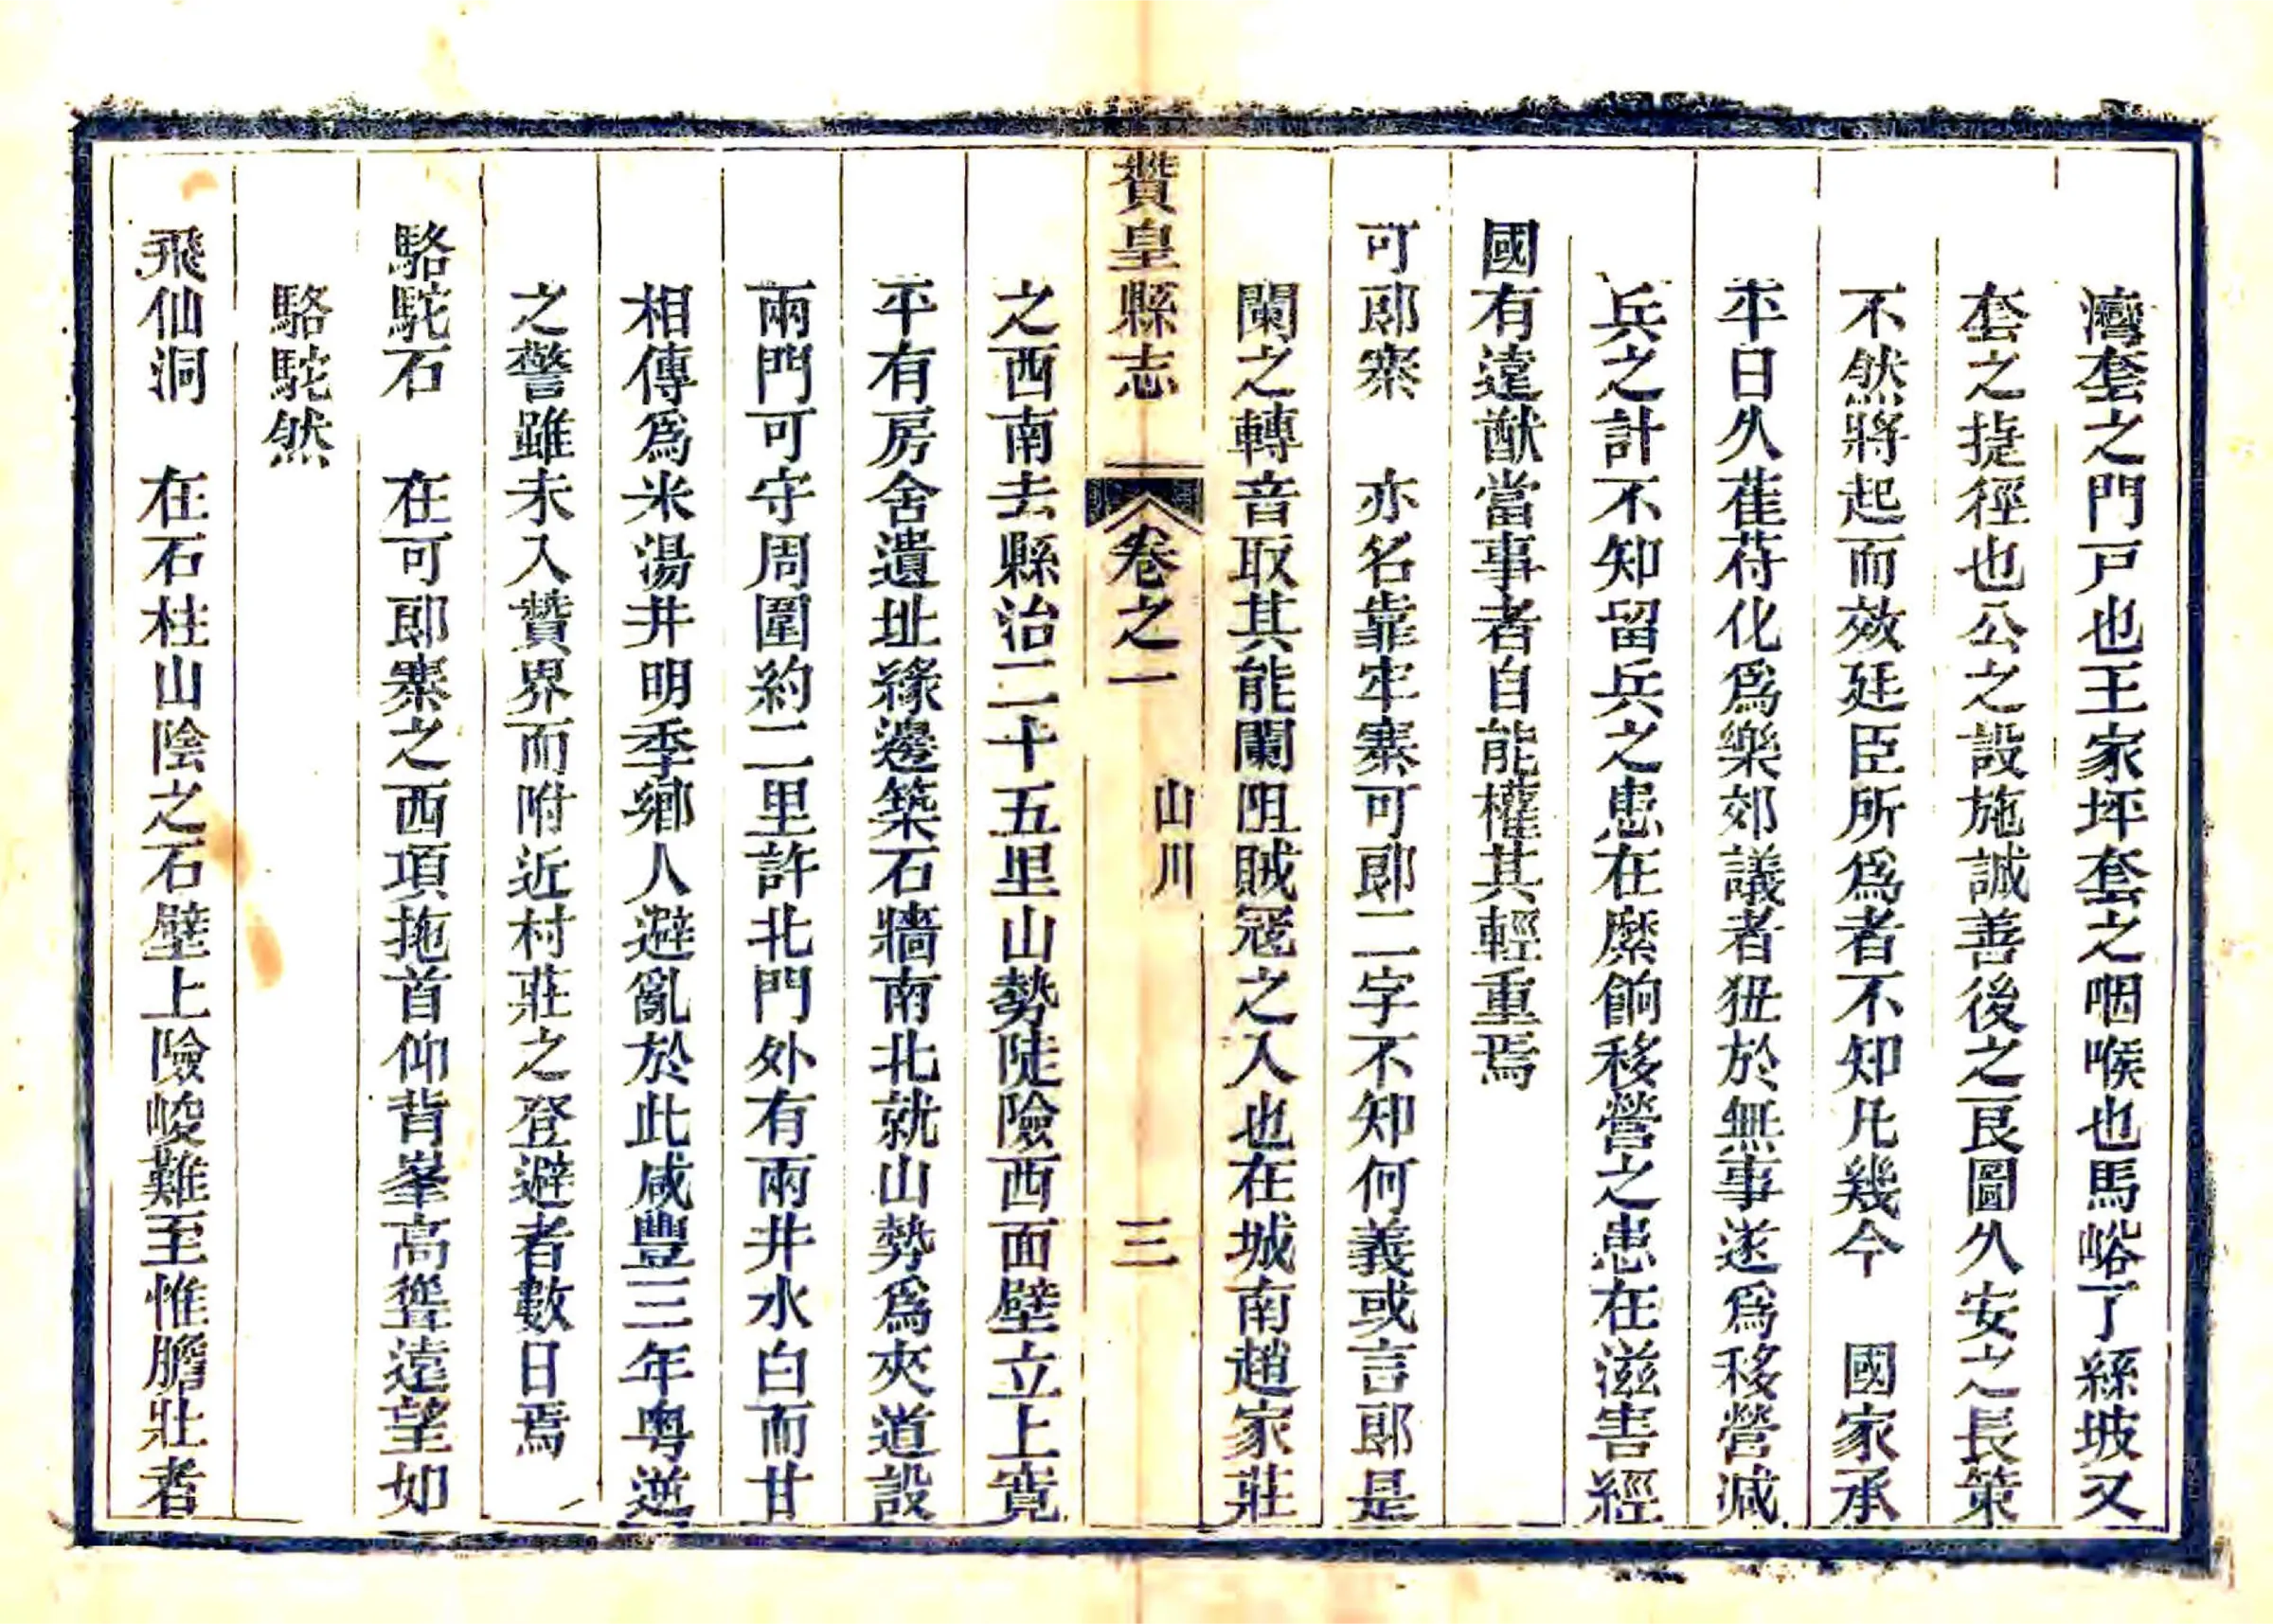 濟套之門戸也王家坪套之咽喉也馬峪了絲坡又
套之捷徑也公之設施誠善後之良圖久安之長策
不然將起而效延臣所爲者不知凡幾今　國家承
平日久萑苻化爲樂郊議者狃於無事遂爲移營減
兵之計不知留兵之患在縻餉移營之患在滋害經
國有遠猷當事者自能權其輕重焉
可郎寨　亦名靠牢寨可郎二字不知何義或言郎是
闌之轉音取其能闌阻賊冦之入也在城南趙家莊
贊皇縣志　卷之一　山川　三
之西南去縣治二十五里山勢陡險西面壁立上寬
平有房舍遺址緣邊築石牆南北就山勢爲夾道設
兩門可守周圍約二里許北門外有兩井水白而甘
相傳爲米湯井明季鄉人避亂於此咸豐三年粤逆
之警雖未入贊界而附近村莊之登避者數日焉
駱駝石　在可郎寨之西項拖首仰背峯高聳遠望如
駱駝然
飛仙洞　在石柱山陰之石壁上險峻難至惟膽壯者